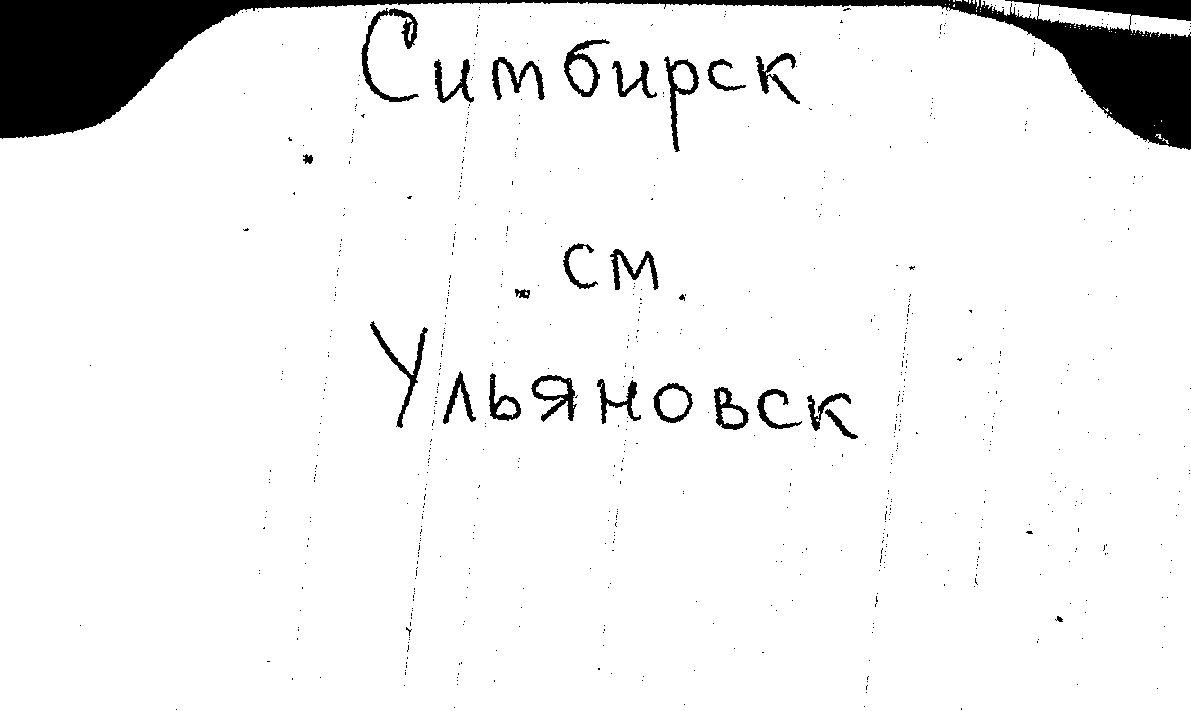 Симбирск
см.
Ульяновск